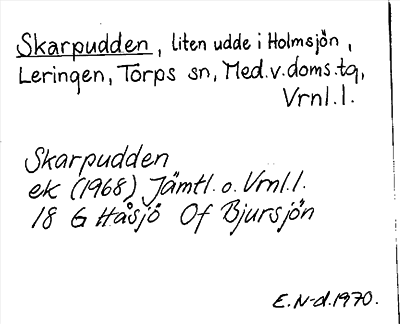 Skarpudden, liten udde i Holmsjön,
Leringen, Torps sn, Med.v.doms.tg,
Vrnl.l.
Skarpudden
ek (1968) Jämtl. o. Vrnl.l.
18 G Håsjö Of Bjursjön
E. N-d. 1970.